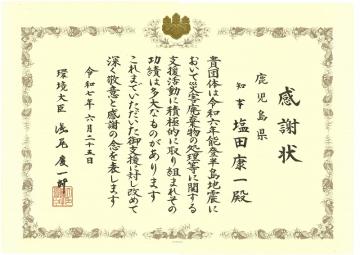 感謝状
鹿児島県
知事 塩田康一殿
貴団体は令和六年能登半島地震に
おいて災害廃棄物の処理等に関する
支援活動に積極的に取り組まれその
功績は多大なものがあります
これまでいただいた御支援に対し改めて
深く敬意と感謝の念を表します
令和七年六月二十五日
環境大臣 浅尾慶一郎